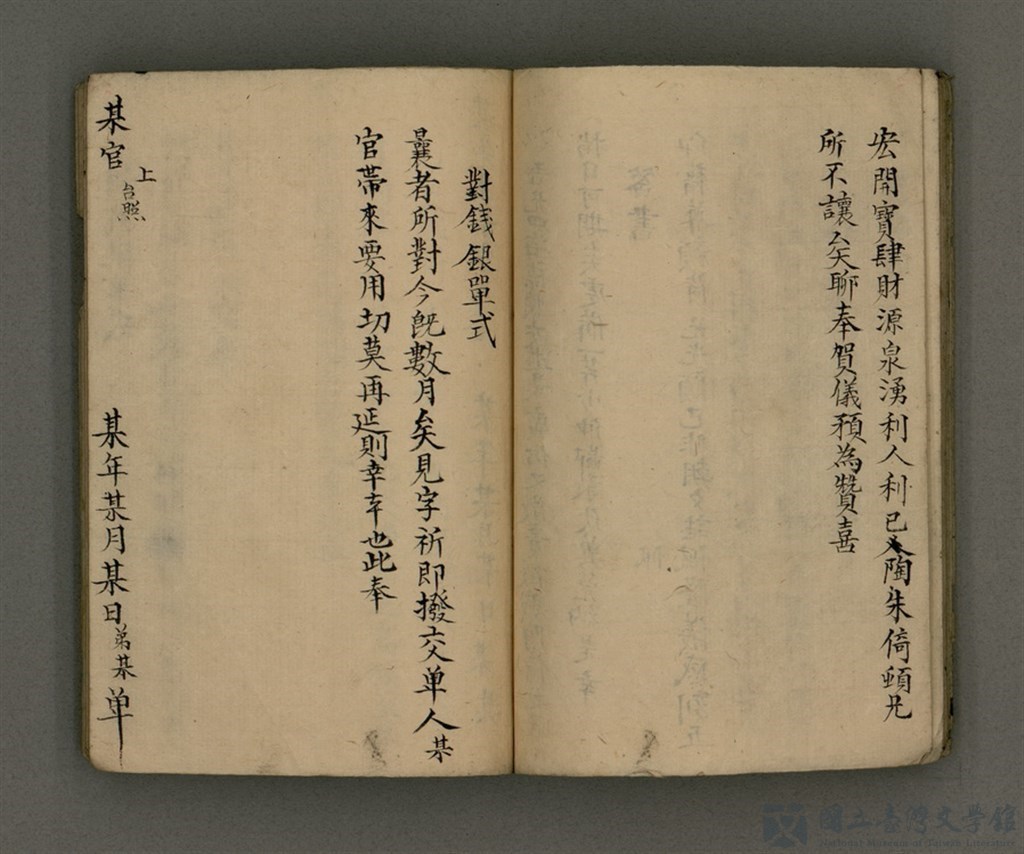 宏開寶肆財源泉湧利人利已陶朱倚頓兄
所不讓矣聊奉賀儀預為贊喜
對錢銀單式
曩者所對今既數月矣見字祈即撥交单人某
官帶來要用切莫再延則幸幸也此奉
某官
上
台照
某年某月某日弟某单
國立臺灣文學館
National Museum of Taiwan Literature